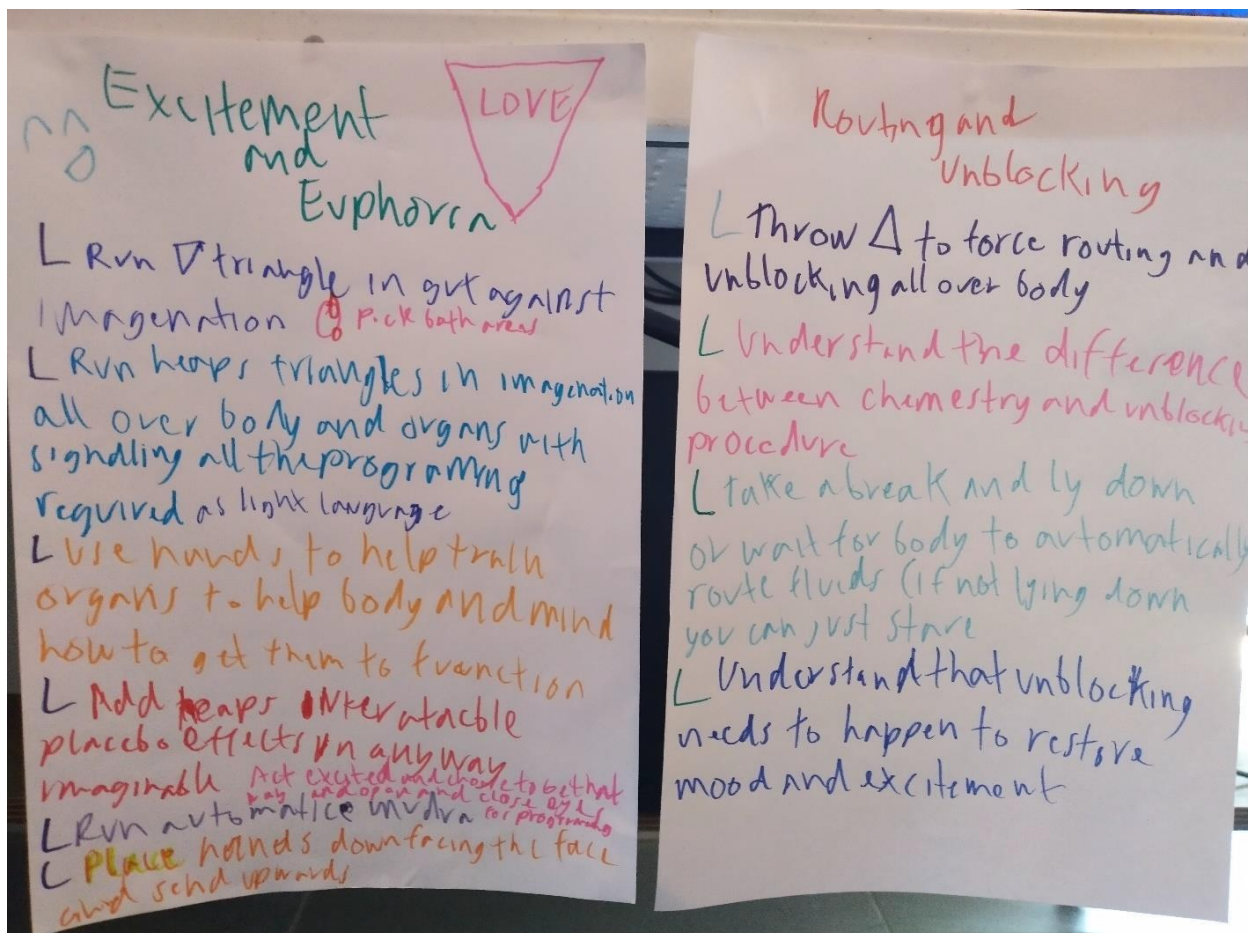 Excitement
and
Euphoria
LOVE
L Run ▽ triangle in gut against
imagenation
pick both areas
L Run heaps triangles in imagenation
all over body and organs with
signalling all the programing
required as light language
L Use hands to help train
organs to help body and mind
how to get them to function
L Add heaps
placebo effects in anyway
imaginable
Act excited and chose to be that
way and open and close eyes
for programing
L Run automatice mudra
L Place hands down facing the face
and send upwards
Routing and
unblocking
L Throw △ to force routing and
unblocking all over body
L Understand the difference
between chemestry and
procedure
L take a break and ly down
or wait for body to automatically
route fluids (if not lying down
you can just stare
L Understand that unblocking
needs to happen to restore
mood and excitement